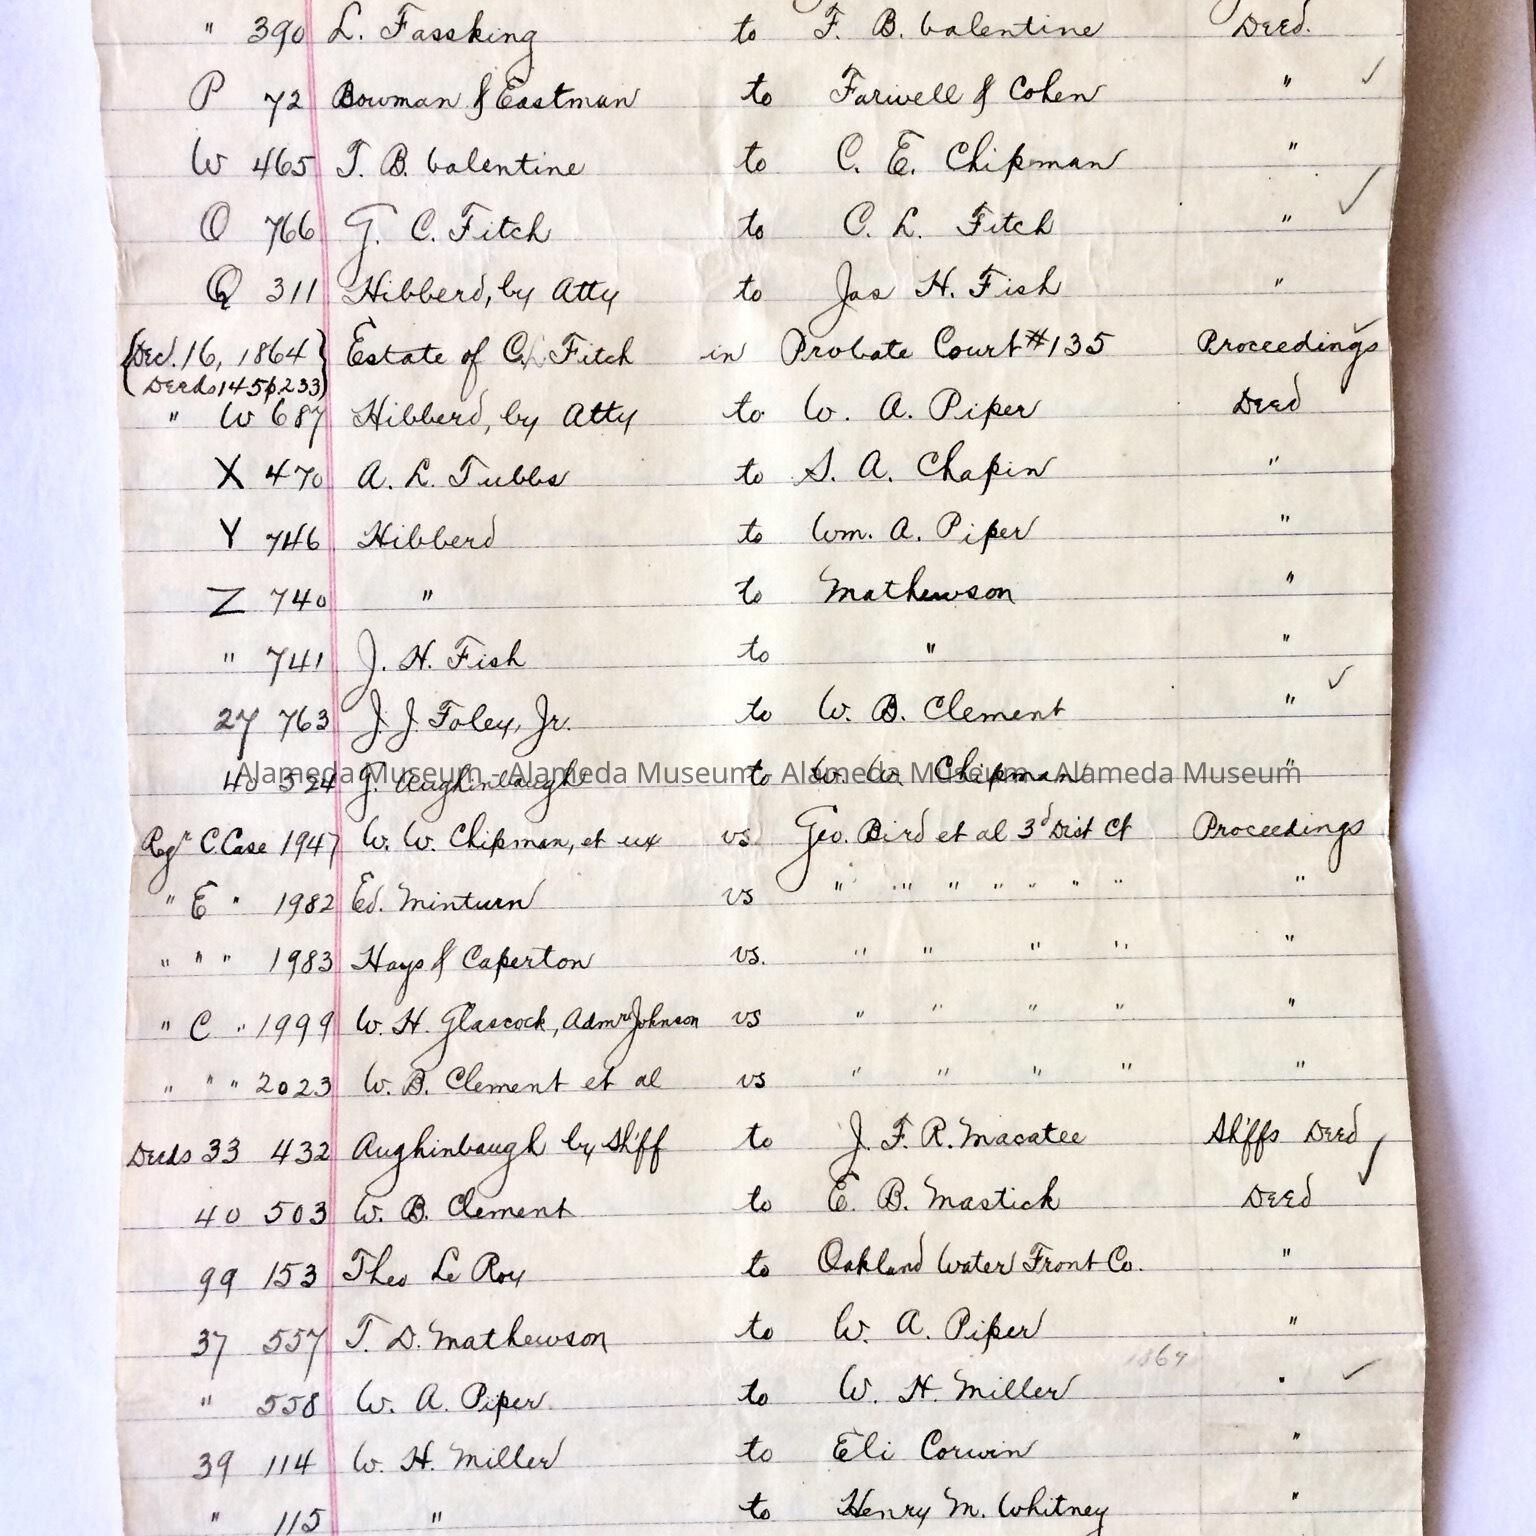 " 390 L. Fassking to F. B. Valentine Deed.
P 72 Bowman & Eastman to Farwell & Cohen " ✓
W 465 T. B. Valentine to C. E. Chipman "
O 766 G. C. Fitch to C. L. Fitch " ✓
Q 311 Hibberd, by Atty to Jas H. Fish "
{Dec. 16, 1864} Estate of C. L. Fitch in Probate Court #135 Proceedings ✓
(Deeds 145 p. 233)
" W 687 Hibberd, by Atty to W. A. Piper Deed
X 470 A. L. Tubbs to S. A. Chapin "
Y 746 Hibberd to Wm. A. Piper "
Z 740 " to Mathewson "
" 741 J. H. Fish to " "
27 763 J. J. Foley, Jr. to W. B. Clement " ✓
40 324 G. Aughinbaugh to W. W. Chipman "
Alameda Museum - Alameda Museum - Alameda Museum - Alameda Museum
Regr C. Case 1947 W. W. Chipman, et ux vs Geo. Bird et al 3d Dist Ct Proceedings
" E " 1982 Ed. Minturn vs " " " " " " " "
" " " 1983 Hays & Caperton vs. " " " " "
" C " 1999 W. H. Glascock, Admr Johnson vs " " " " "
" " " 2023 W. B. Clement et al vs " " " " "
Deeds 33 432 Aughinbaugh by Shff to J. F. R. Macatee Shffs Deed ✓
40 503 W. B. Clement to E. B. Mastick Deed ✓
99 153 Theo Le Roy to Oakland Water Front Co. "
37 557 T. D. Mathewson to W. A. Piper "
1864
" 558 W. A. Piper to W. H. Miller " ✓
39 114 W. H. Miller to Eli Corwin "
" 115 " to Henry M. Whitney "